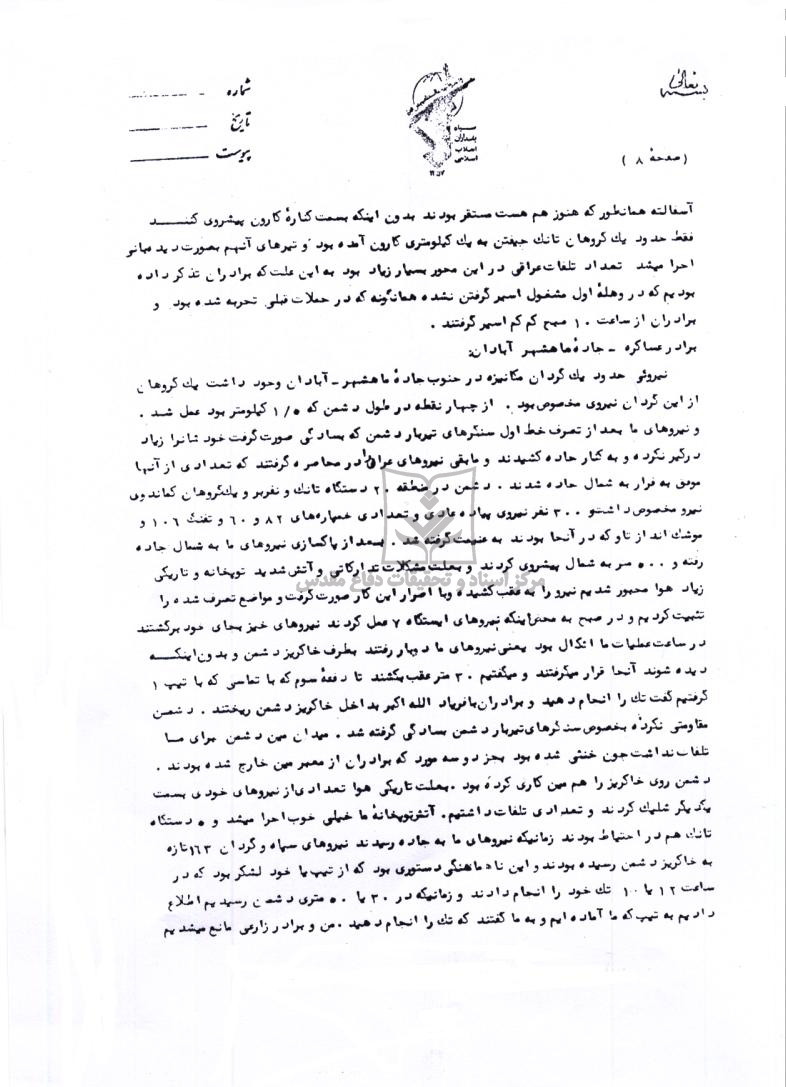 بسمه تعالی
شماره
تاریخ
پیوست
سپاه
پاسداران
انقلاب
اسلامی
(صفحهٔ ۸ )
آسفالته همانطور که هنوز هم هست مستقر بودند بدون اینکه بسمت کنارهٔ کارون پیشروی کننـد
فقط حدود یک گروهان تانک چیفتن به یک کیلومتری کارون آمده بود و تیرهای آنهم بصورت دیدبانی
اجرا میشد تعداد تلفات عراقی در این محور بسیار زیاد بود به این علت که برادران تذکر داده
بودیم که در وهلهٔ اول مشغول اسیر گرفتن نشده همانگونه که در حملات قبلی تجربه شده بود و
برادران از ساعت ۱۰ صبح کم کم اسیر گرفتند .
برادر عساکره - جادهٔ ماهشهر آبادان:
نیروئی حدود یک گردان مکانیزه در جنوب جادهٔ ماهشهر - آبادان وجود داشت یک گروهان
از این گردان نیروی مخصوص بود . از چهار نقطه در طول دشمن که ۱/۵ کیلومتر بود عمل شـد .
و نیروهای ما بعد از تصرف خط اول سنگرهای تیربار دشمن که بسادگی صورت گرفت خود شانرا زیاد
درگیر نکرده و به کنار جاده کشیدند و مابقی نیروهای عراق را در محاصره گرفتند که تعدادی از آنها
موفق به فرار به شمال جاده شدند . دشمن در منطقه ۲۰ دستگاه تانک و نفربر و یک گروهان کماندوی
نیرو مخصوص داشتو ۳۰۰ نفر نیروی پیاده عادی و تعدادی خمپاره‌های ۸۲ و ۶۰ و تفنگ ۱۰۶ و
موشک انداز تاو که در آنجا بودند به غنیمت گرفته شد . بـعد از پاکسازی نیروهای ما به شمال جاده
رفته و ۵۰۰ متر به شمال پیشروی کردند و بعلت مشکلات تدارکاتی و آتش شدید توپخانه و تاریکی
زیاد هوا مجبور شدیم نیرو را به عقب کشیده وبا اصرار این کار صورت گرفت و مواضع تصرف شده را
تثبیت کردیم و در صبح به محض اینکه نیروهای ایستگاه ۷ عمل کردند نیروهای خیز بجای خود برگشتند
در ساعت عملیات ما اشکال بود یعنی نیروهای ما دوبار رفتند بطرف خاکریز دشمن و بدون اینکـــه
دیده شوند آنجا قرار میگرفتند و میگفتیم ۳۰ متر عقب بکشند تا دفعهٔ سوم که با تماسی که با تیپ ۱
گرفتیم گفت تک را انجام دهید و برادران با فریاد الله اکبر بداخل خاکریز دشمن ریختند . دشمـن
مقاومتی نکرده بخصوص سنگرهای تیربار دشمن بسادگی گرفته شد . میدان مین دشمن برای مــا
تلفات نداشت چون خنثی شده بود بجز دو سه مورد که برادران از معبر مین خارج شده بودند .
دشمن روی خاکریز را هم مین کاری کرده بود . بعلت تاریکی هوا تعدادی از نیروهای خودی بسمت
یکدیگر شلیک کردند و تعدادی تلفات داشتیم . آتش توپخانهٔ ما خیلی خوب اجرا میشد و ۵ دستگاه
تانک هم در احتیاط بودند زمانیکه نیروهای ما به جاده رسیدند نیروهای سپاه و گردان ۱۶۳ تازه
به خاکریز دشمن رسیده بودند و این ناهماهنگی دستوری بود که از تیپ یا خود لشکر بود که در
ساعت ۱۲ یا ۱۰ تک خود را انجام دادند و زمانیکه در ۳۰ یا ۵۰ متری دشمن رسیدیم اطلاع
دادیم به تیپ که ما آماده ایم و به ما گفتند که تک را انجام دهید . من و برادر زارعی مانع میشدیم
مرکز اسناد و تحقیقات دفاع مقدس